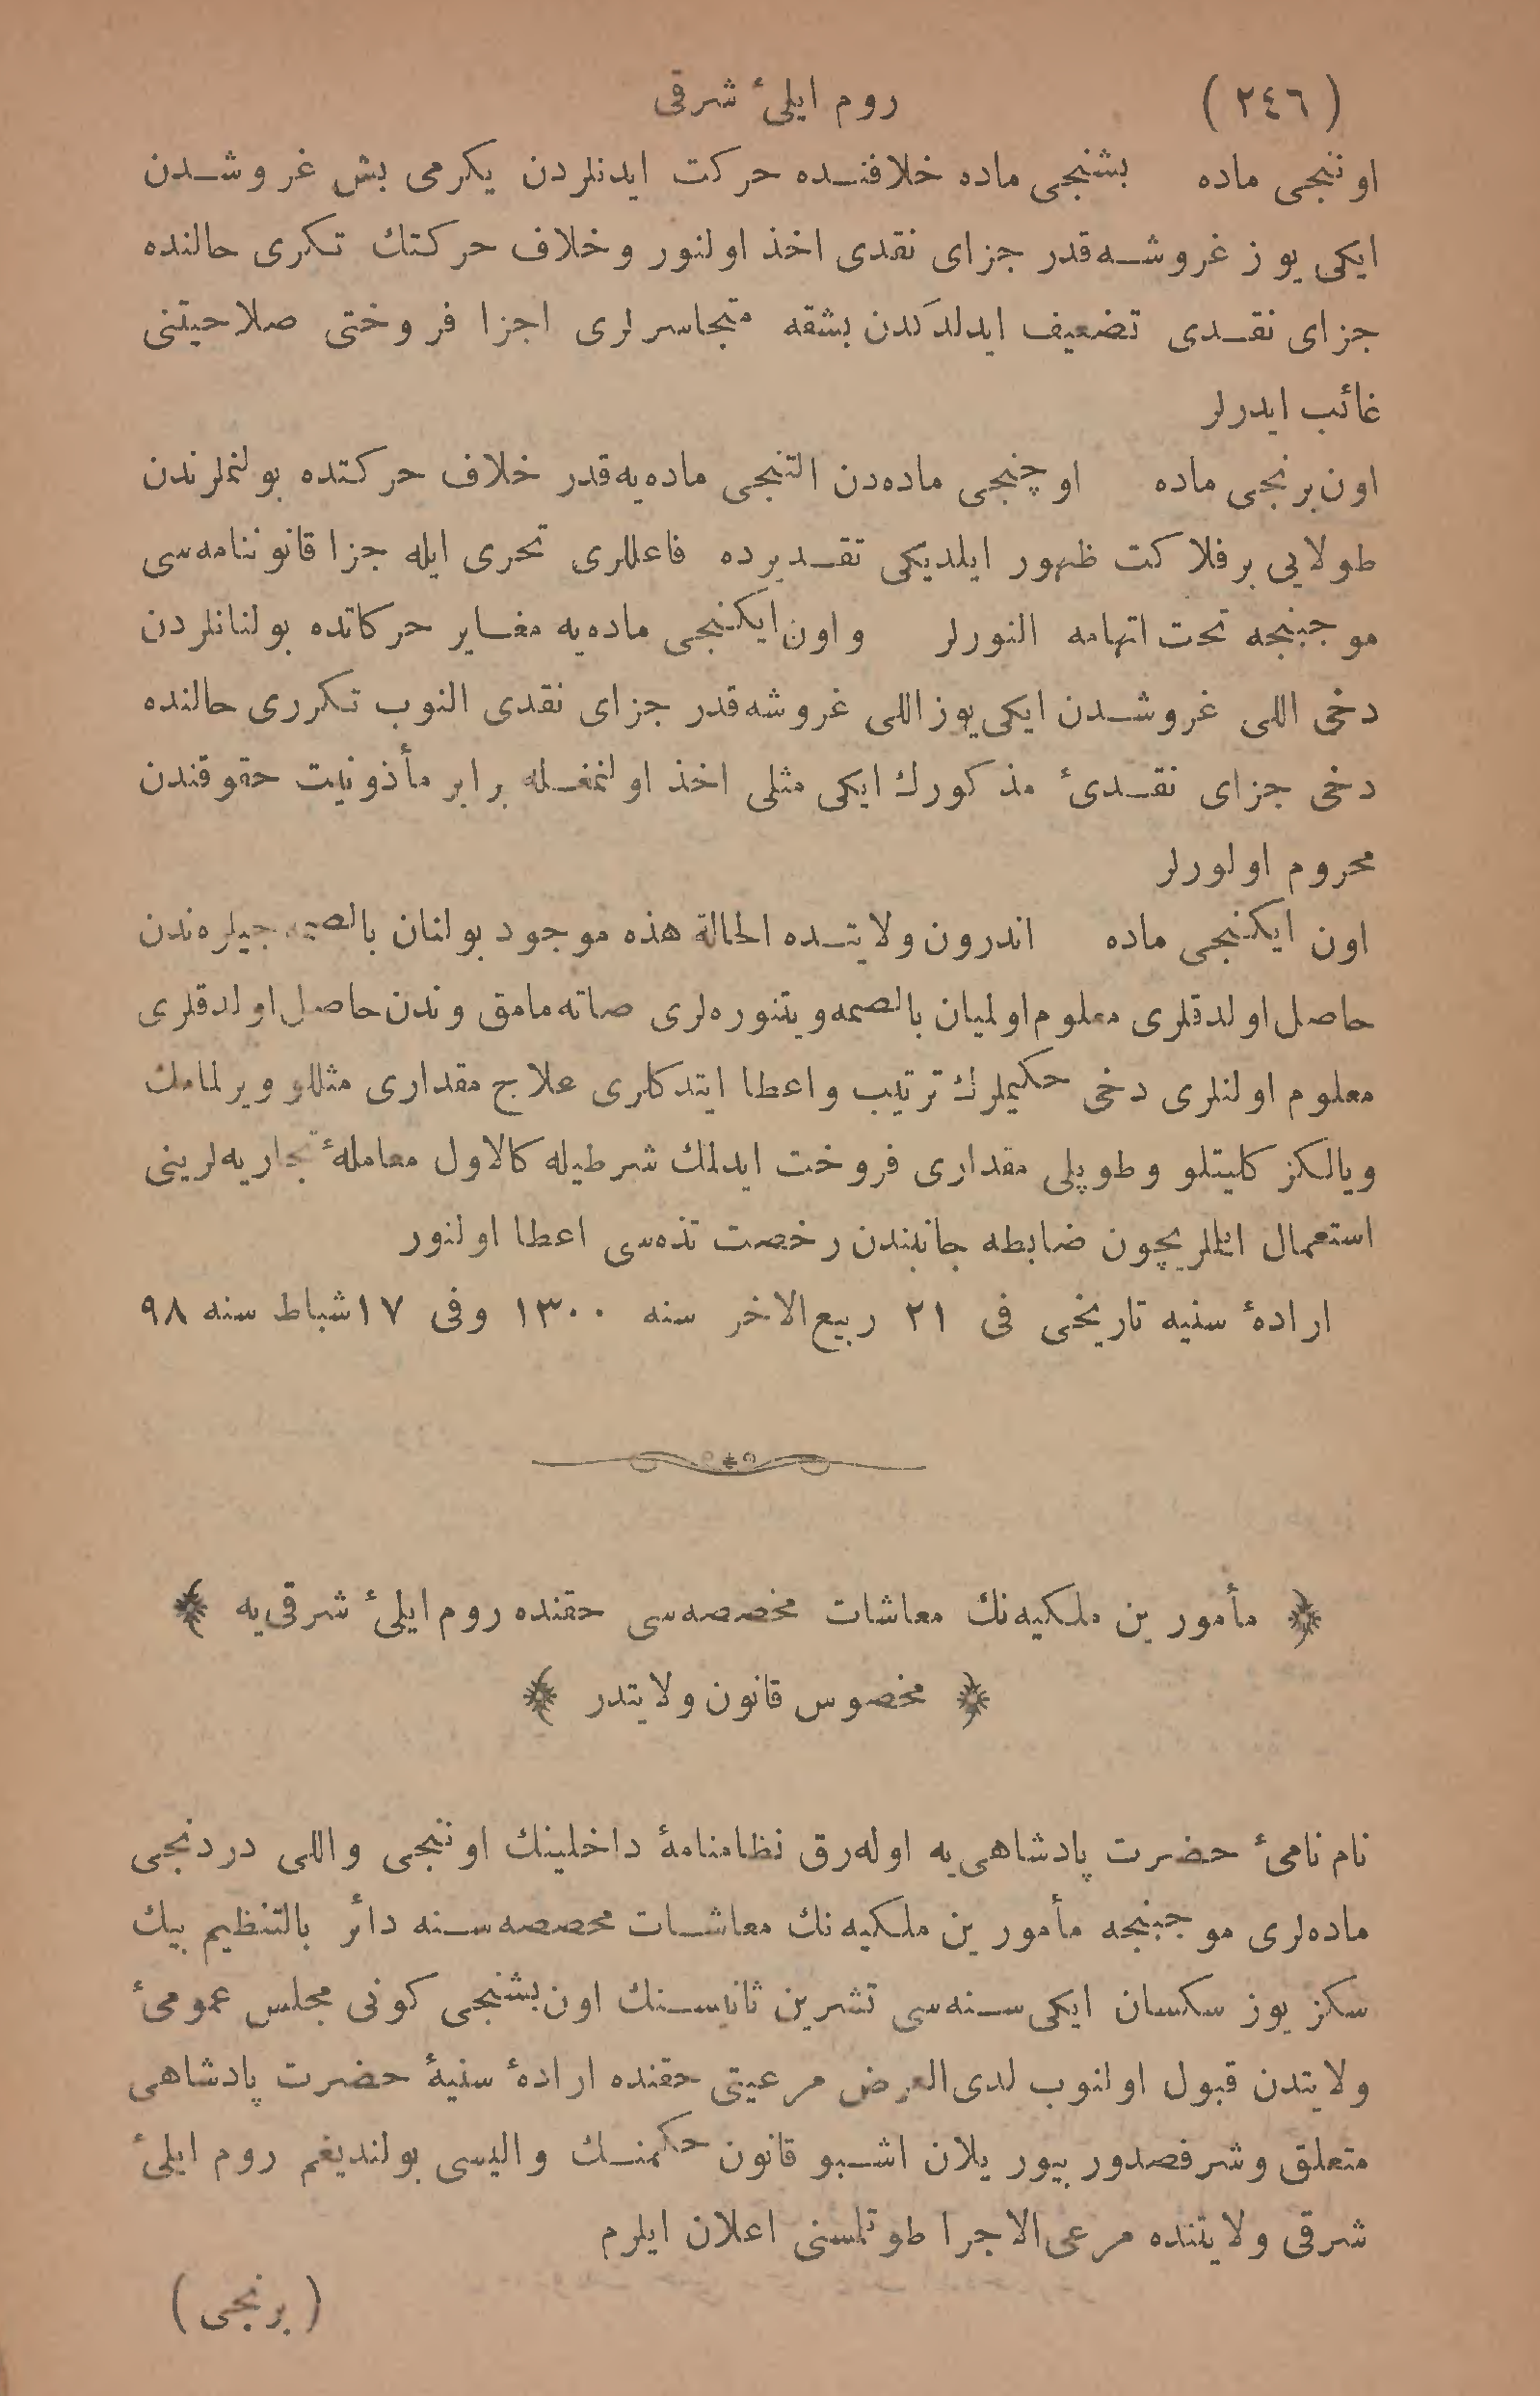 (٢٤٦) روم ایلیٔ شرقی
اوننجی ماده بشنجی ماده خلافنده حرکت ایدنلردن یکرمی بش غروشدن
ایکی یوز غروشه‌قدر جزای نقدی اخذ اولنور وخلاف حرکتك تکری حالنده
جزای نقدی تضعیف ایدلدکدن بشقه متجاسرلری اجزا فروختی صلاحیتنی
غائب ایدرلر
اون‌برنجی ماده اوچنجی ماده‌دن التنجی ماده‌یه‌قدر خلاف حرکتده بولنملرندن
طولایی برفلاکت ظهور ایلدیکی تقدیرده فاعللری تحری ایله جزا قانوننامه‌سی
موجبنجه تحت اتهامه النورلر واون‌ایکنجی ماده‌یه مغایر حرکاتده بولنانلردن
دخی اللی غروشدن ایکی‌یوزاللی غروشه‌قدر جزای نقدی النوب تکرری حالنده
دخی جزای نقدیٔ مذکورك ایکی مثلی اخذ اولنمغله برابر مأذونیت حقوقندن
محروم اولورلر
اون ایکنجی ماده اندرون ولایتده الحالة هذه موجود بولنان بالصمه جیلره‌ندن
حاصل‌اولدقلری معلوم‌اولمیان بالصمه‌ویتنوره‌لری صاته‌مامق وندن‌حاصل‌اولدقلری
معلوم اولنلری دخی حکیملرك ترتیب واعطا ایتدکلری علاج مقداری مثللو ویرلمامك
ویالکز کلیتلو وطوپلی مقداری فروخت ایدلمك شرطیله کالاول معاملهٔ تجاریه‌لرینی
استعمال ایتملریچون ضابطه جانبندن رخصت تذه‌سی اعطا اولنور
ارادهٔ سنیه تاریخی فی ٢١ ربیع‌الاخر سنه ١٣٠٠ وفی ١٧شباط سنه ٩٨
مأمورین ملکیه‌نك معاشات مخصصه‌سی حقنده روم‌ایلیٔ شرقی‌یه
مخصوص قانون ولایتدر
نام نامیٔ حضرت پادشاهی‌یه اوله‌رق نظامنامهٔ داخلینك اوننجی واللی دردنجی
ماده‌لری موجبنجه مأمورین ملکیه‌نك معاشات مخصصه‌سنه دائر بالتنظیم بیك
سکز یوز سکسان ایکی‌سنه‌سی تشرین ثانیسنك اون‌بشنجی کونی مجلس عمومیٔ
ولایتدن قبول اولنوب لدی‌العرض مرعیتی حقنده ارادهٔ سنیهٔ حضرت پادشاهی
متعلق وشرفصدور بیوریلان اشبو قانون حکمنك والیسی بولندیغم روم ایلیٔ
شرقی ولایتنده مرعی‌الاجرا طوتلمسنی اعلان ایلرم
(برنجی)